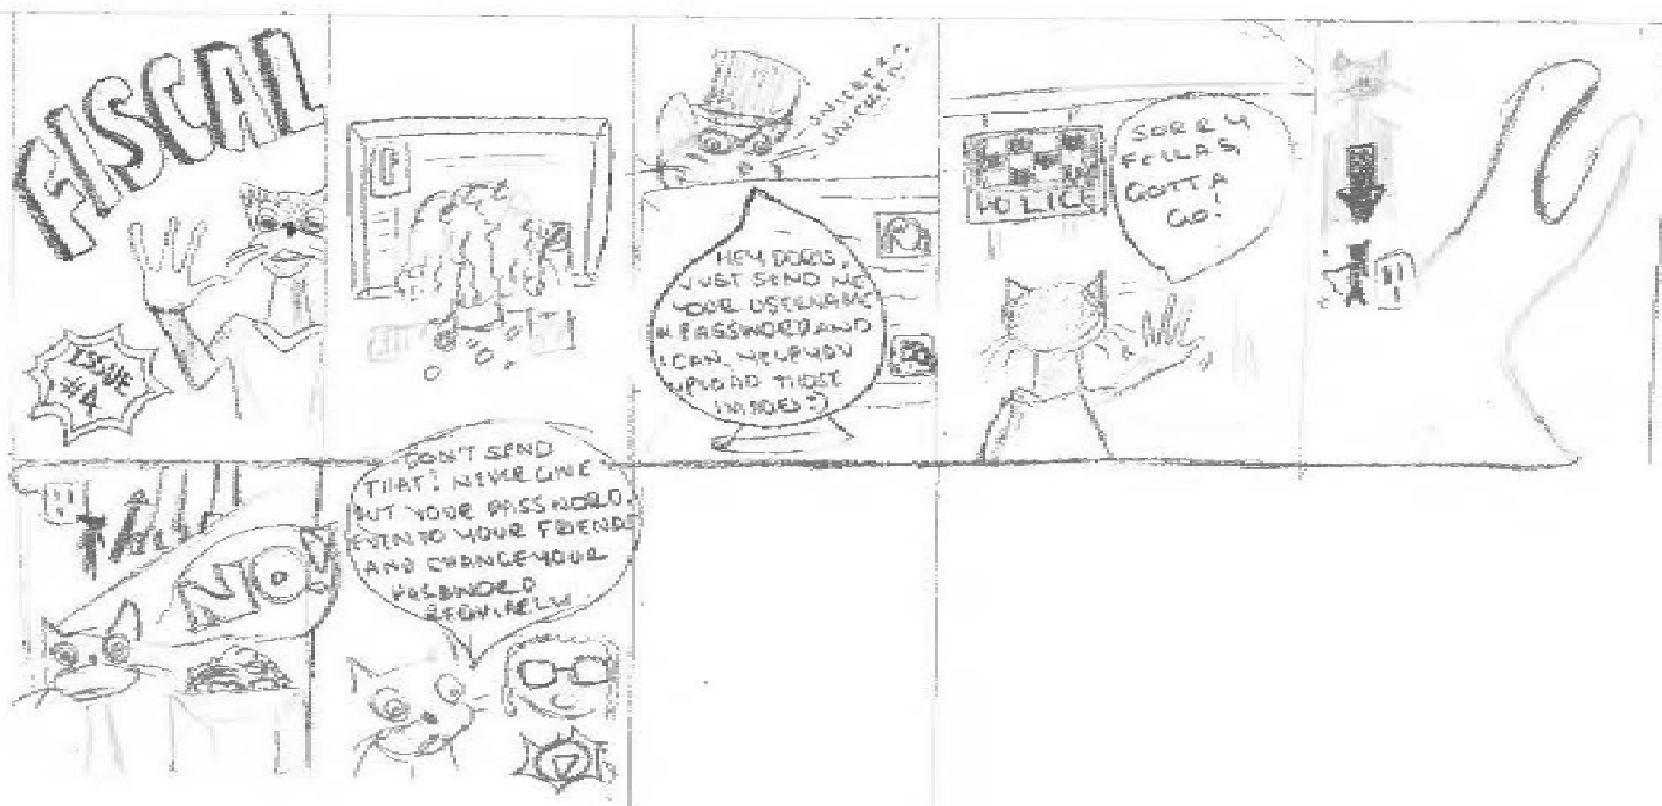 FISCAL
ISSUE
#4
SNICKER,
SNICKER!
HEY DORIS,
JUST SEND ME
YOUR USERNAME
& PASSWORD AND
I CAN HELP YOU
UPLOAD THOSE
IMAGES :)
POLICE
SORRY
FELLAS,
GOTTA
GO!
NO!
DON'T SEND
THAT! NEVER GIVE
OUT YOUR PASSWORD,
EVEN TO YOUR FRIENDS
AND CHANGE YOUR
PASSWORD
REGULARLY